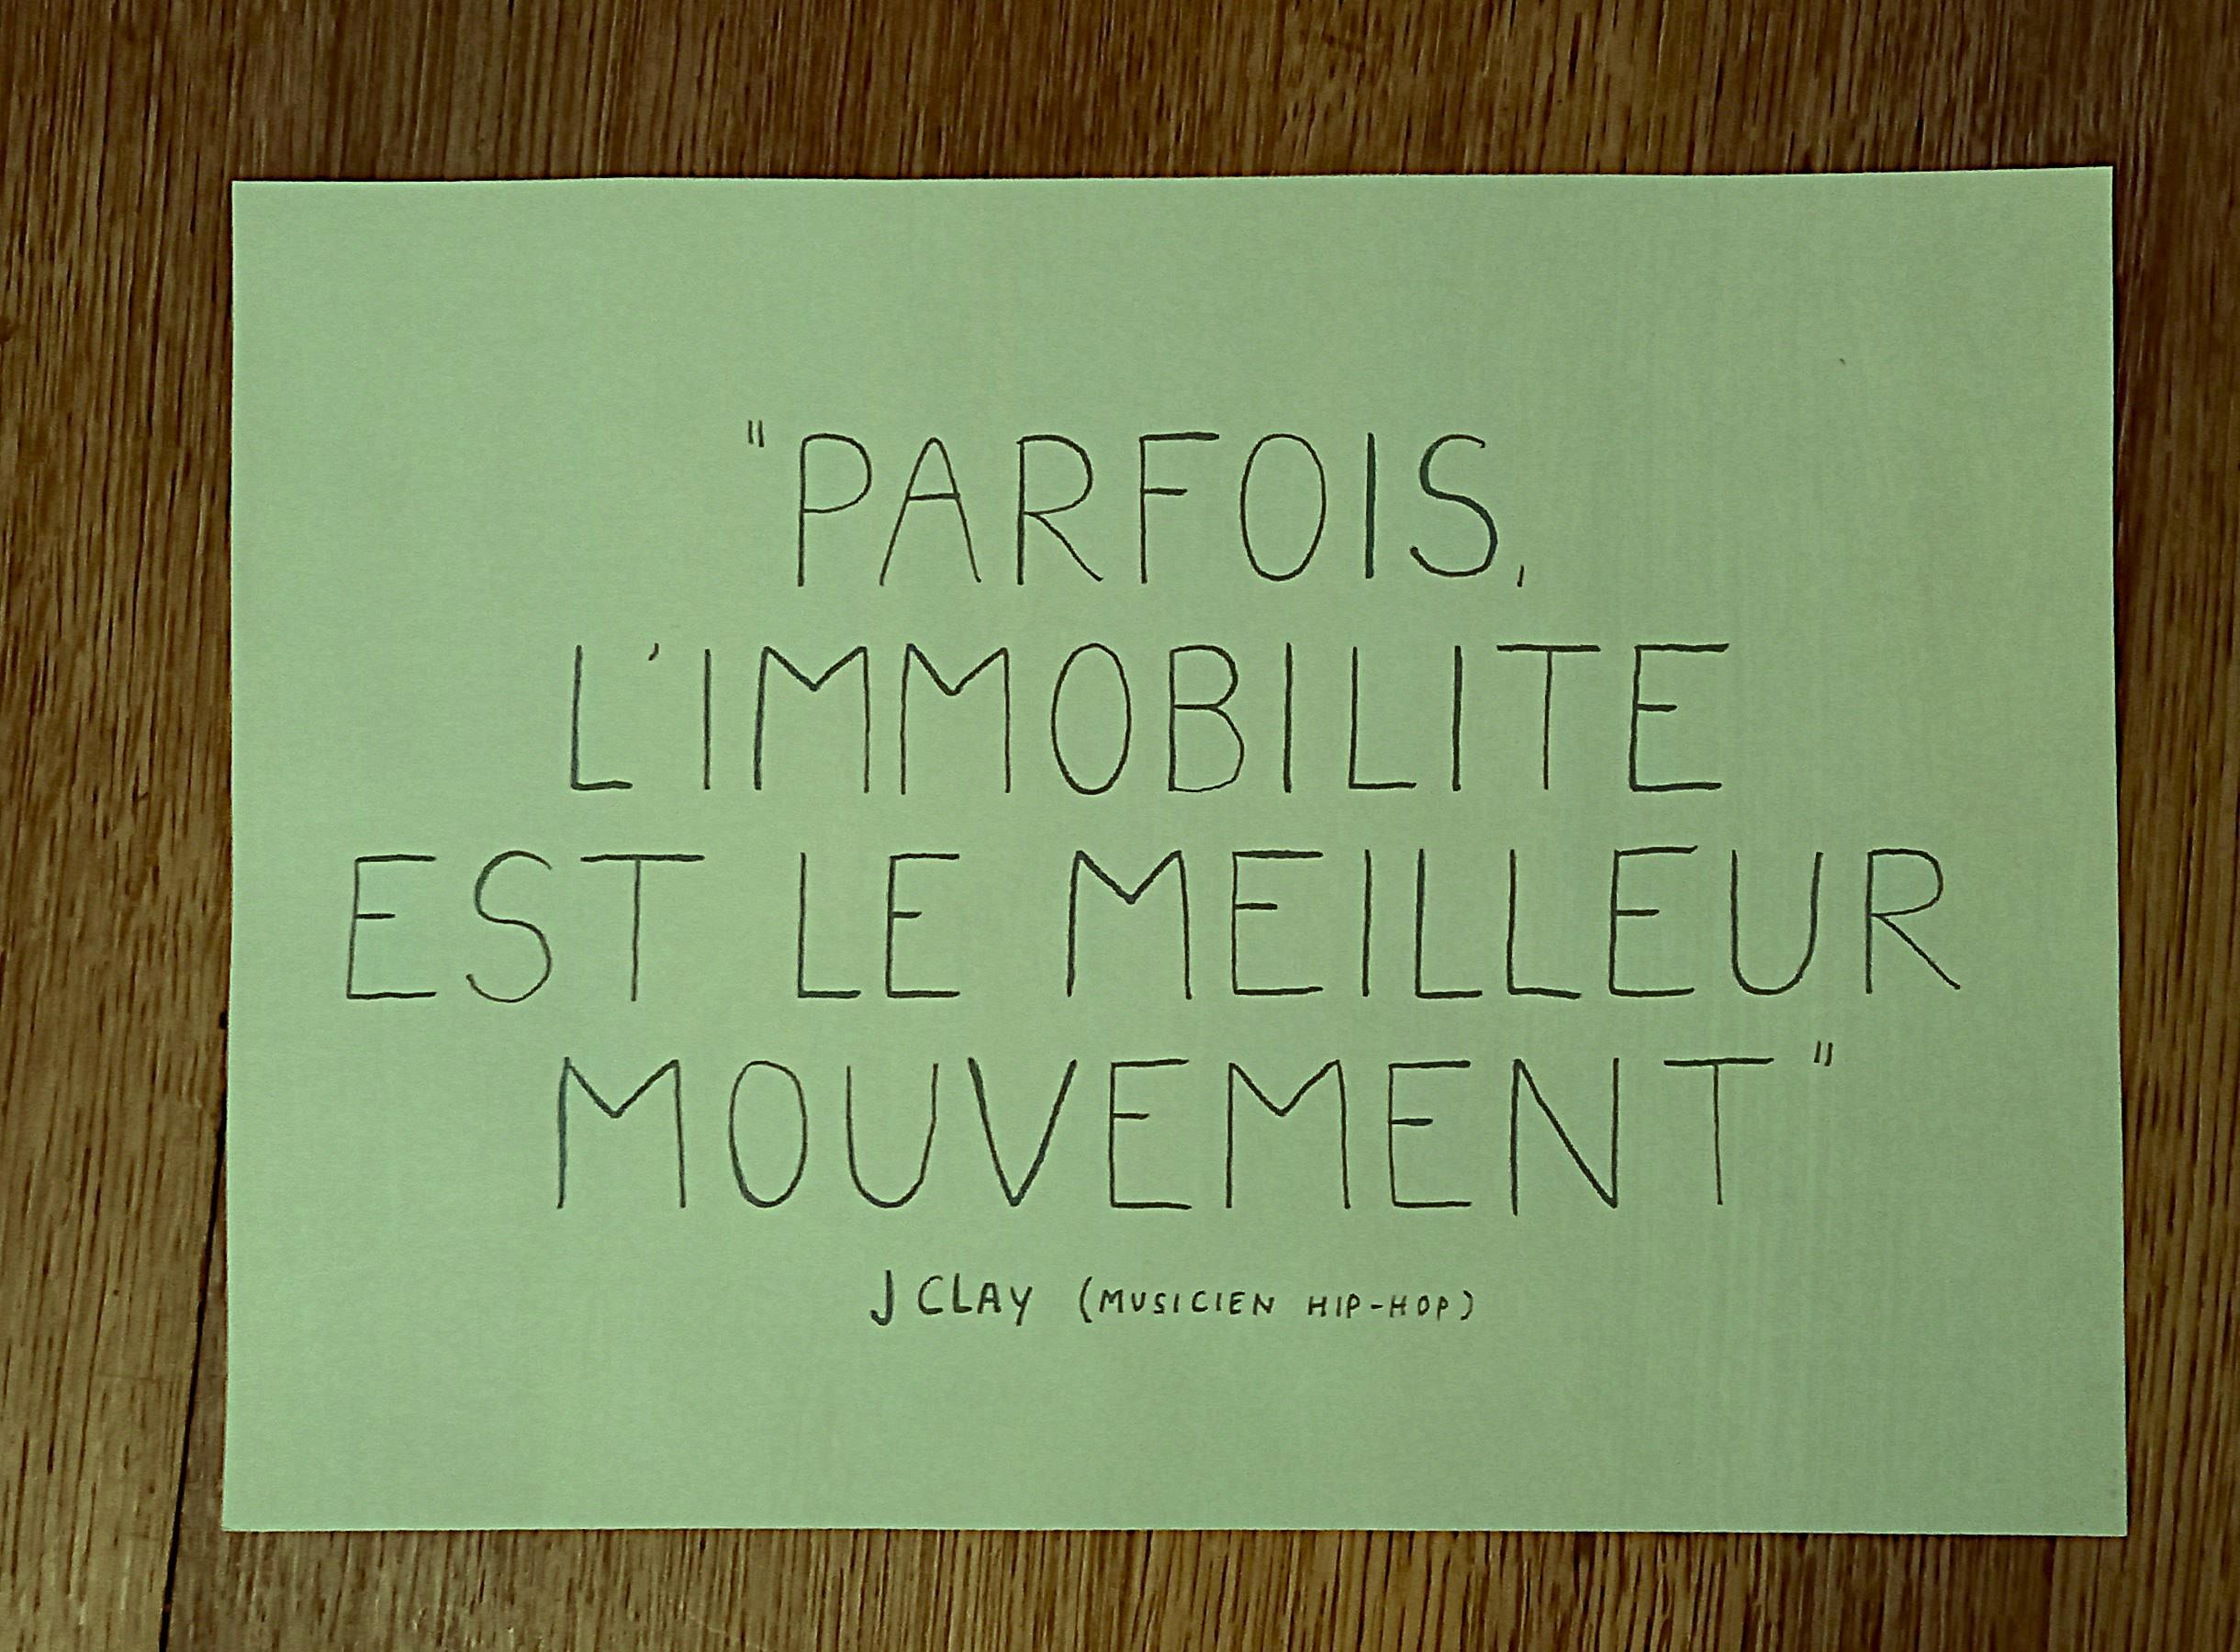 "PARFOIS,
L'IMMOBILITE
EST LE MEILLEUR
MOUVEMENT"
J CLAY (MUSICIEN HIP-HOP)